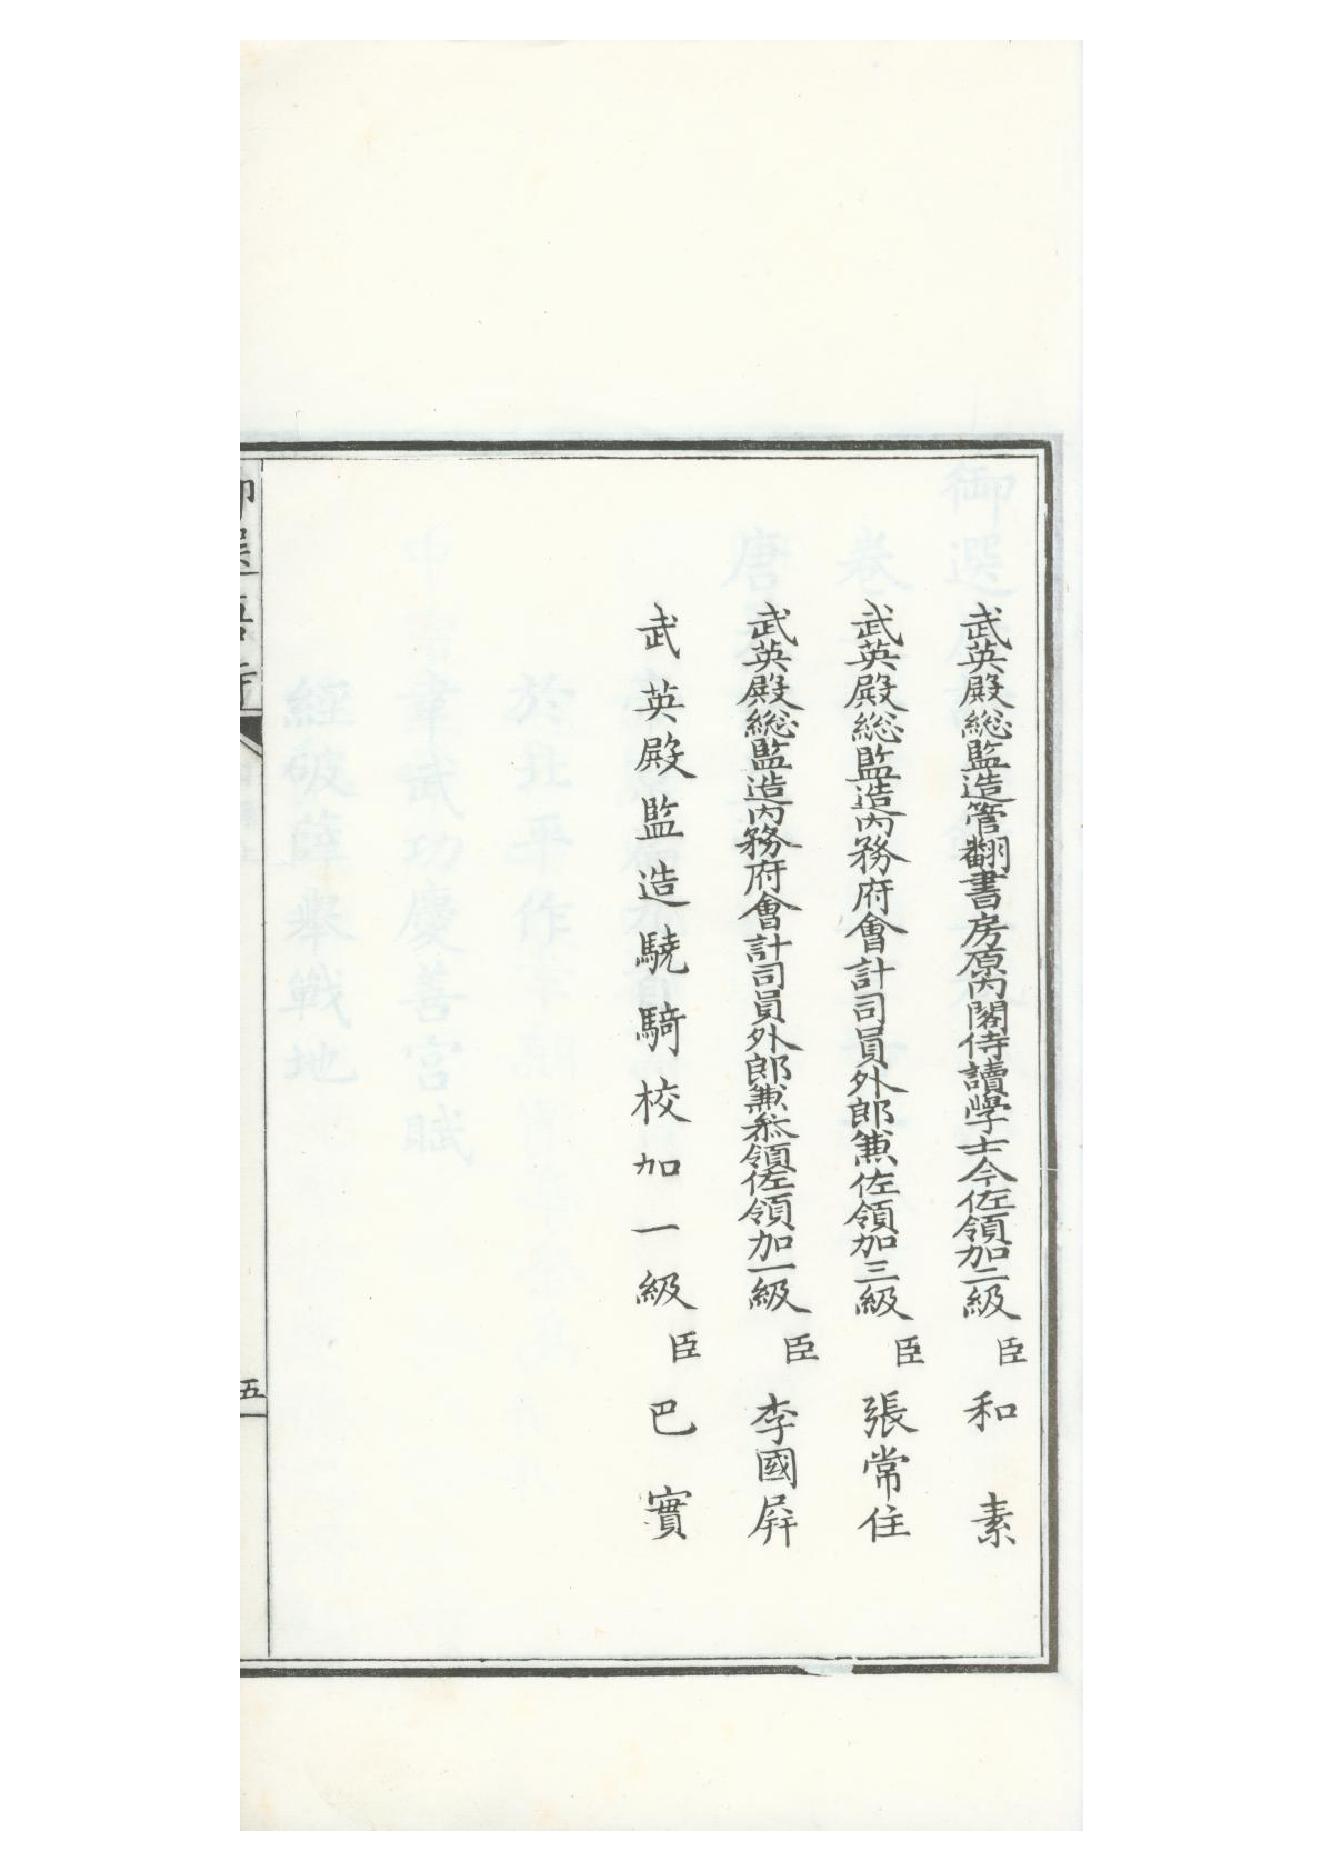 武英殿総監造管翻書房原内閣侍讀學士今佐領加二級臣和素
武英殿総監造内務府會計司員外郎兼佐領加三級臣張常住
武英殿総監造内務府會計司員外郎兼叅領佐領加一級臣李國屏
武英殿監造驍騎校加一級臣巴實
五